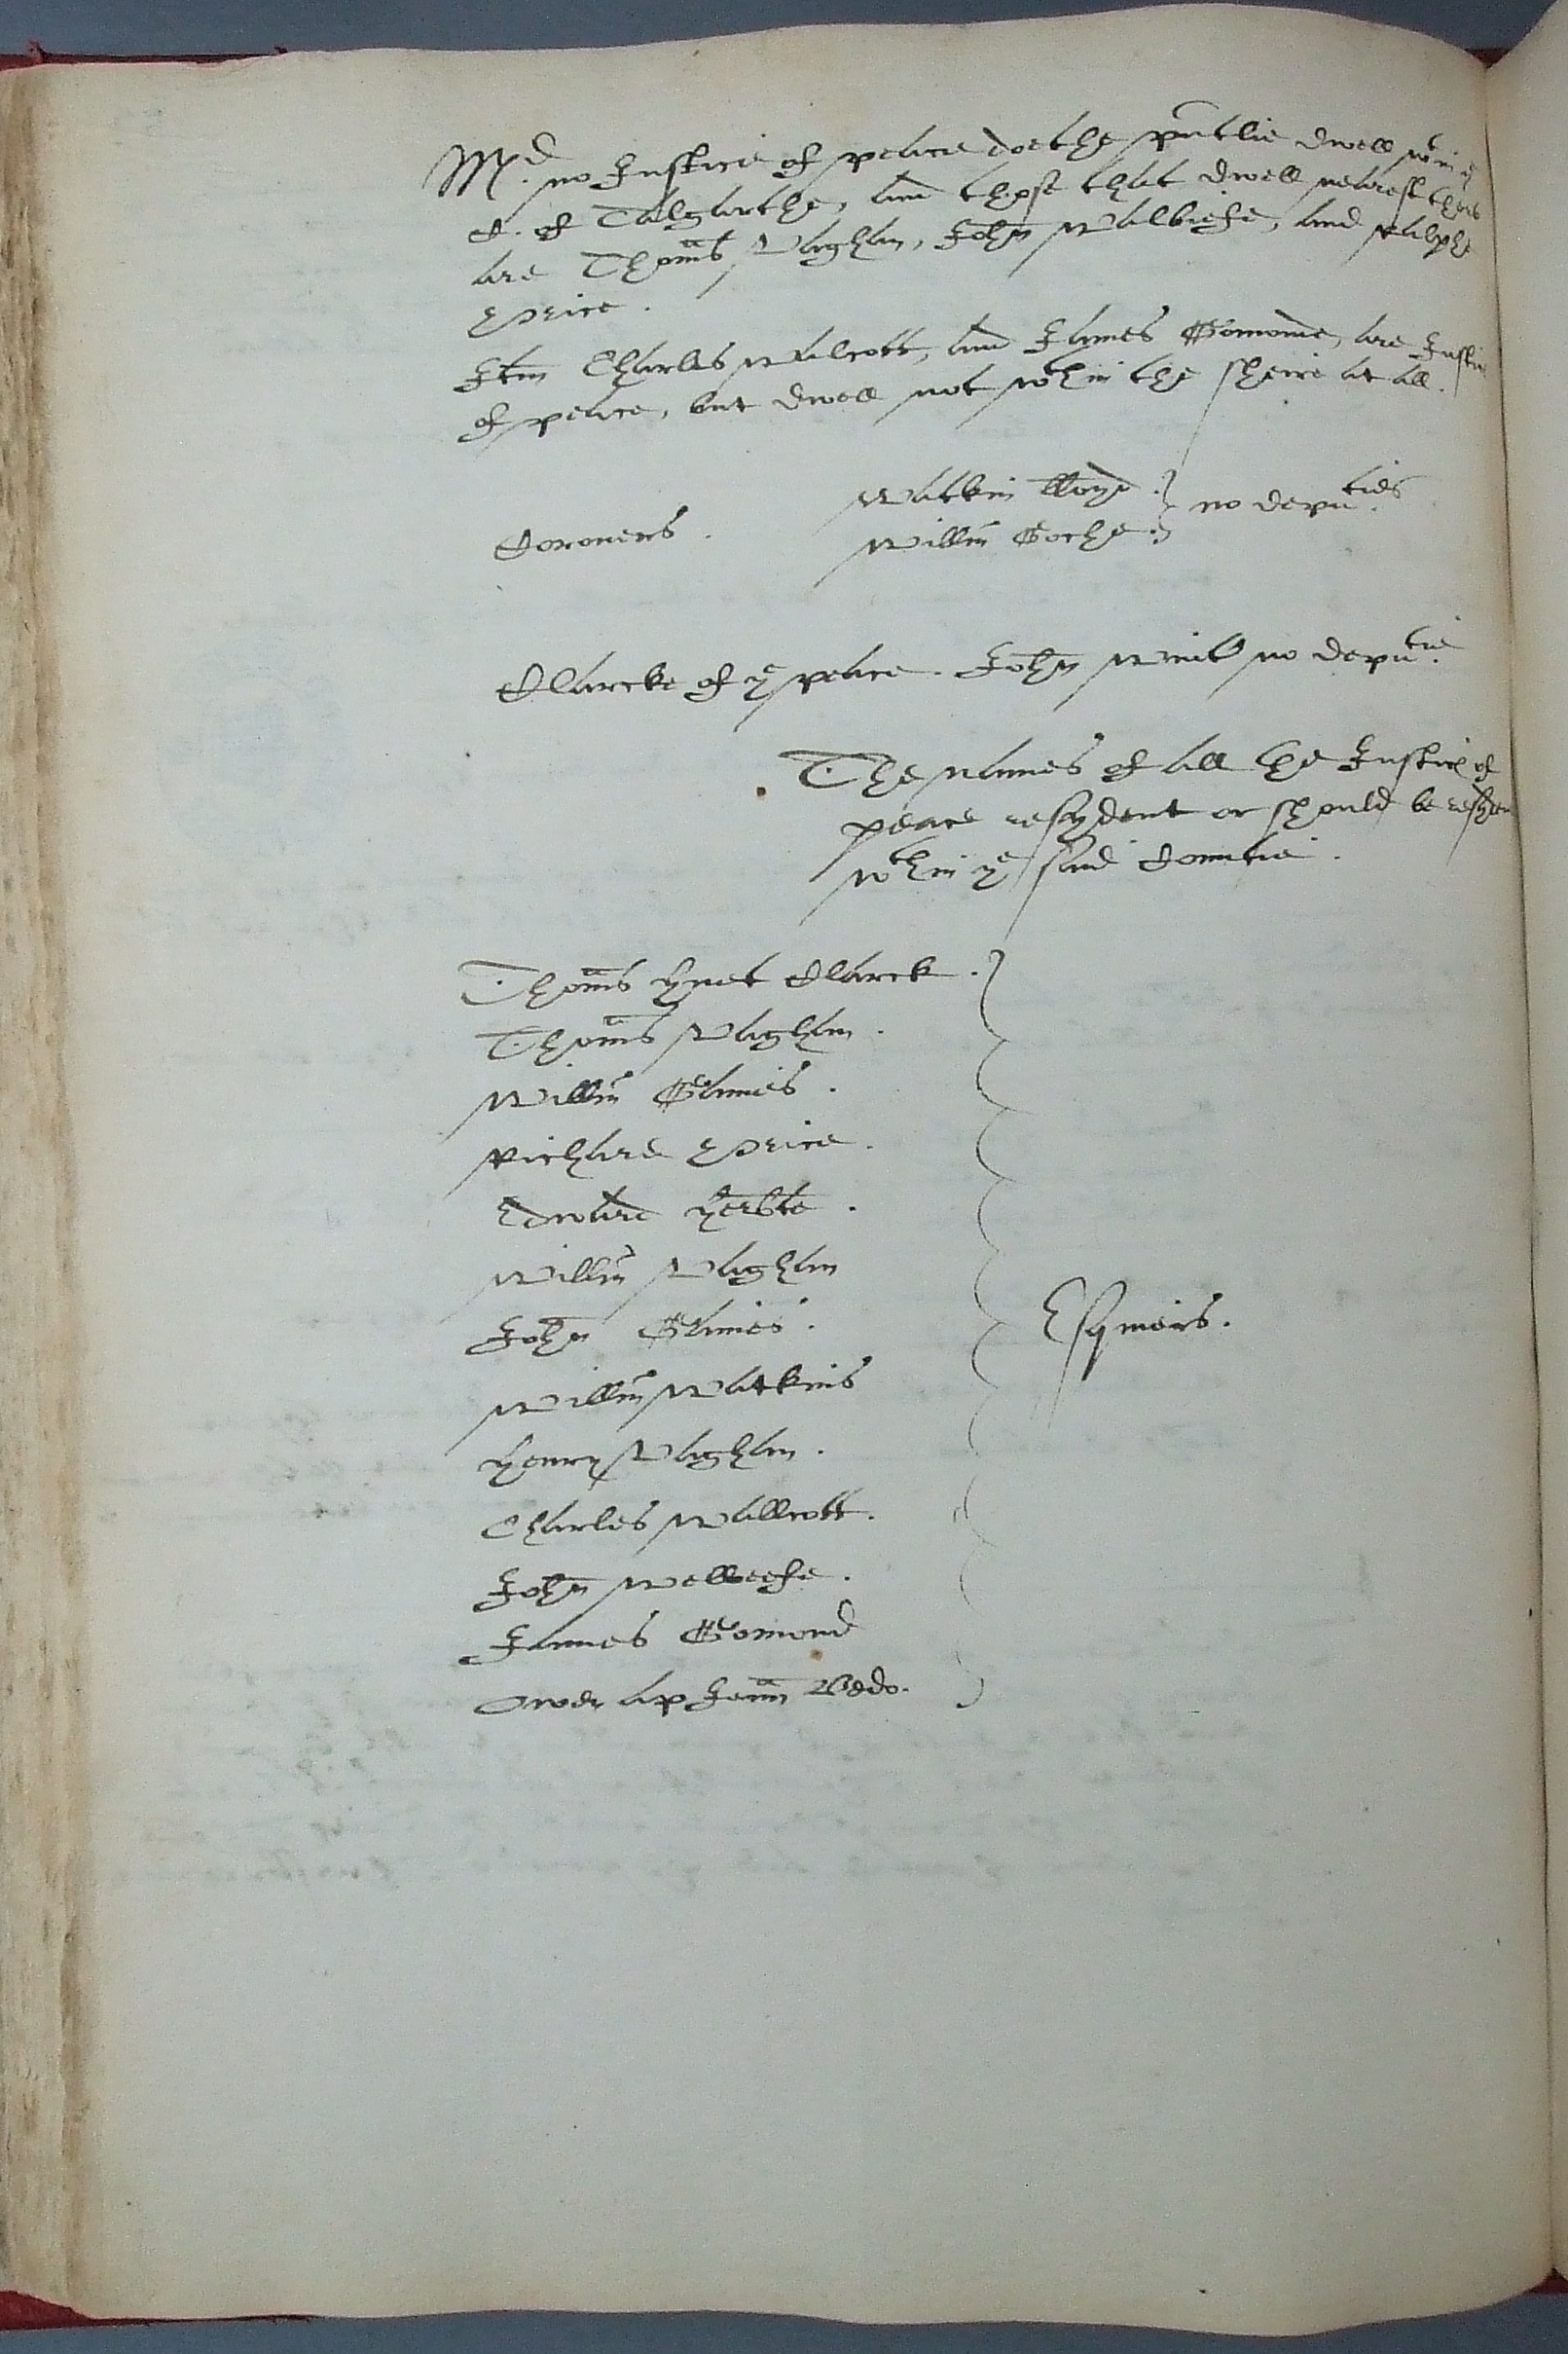 Md. no Justice of peace doethe pntlie dwell wt in ye
C. of Talgarthe, and those that dwell nearest thers
are Thoms Vaghan, John Walbiefe, and Ralphe
Price.
Itm Charles Walcott, and James Gomond, are Justic
of peace, but dwell not wthin the sheire at all.
Coroners. Watkin lloyd. } no deputies.
Willm Goche. }
Clarcke of ye peace. John no deputie.
The names of all the Justic of
peace resydent or should be resyden
wthin ye said Countie.
Thoms Clarck.
Thoms Vaghan.
Willm Games.
Richard Price.
Edward Herbte.
Willm Vaghan
John Games.
Willm Watkins
Henry Vaghan.
Charles Wallcott.
John Welbeefe.
James Gomond
Owen ap Jenn Bedo.
Esquiers.